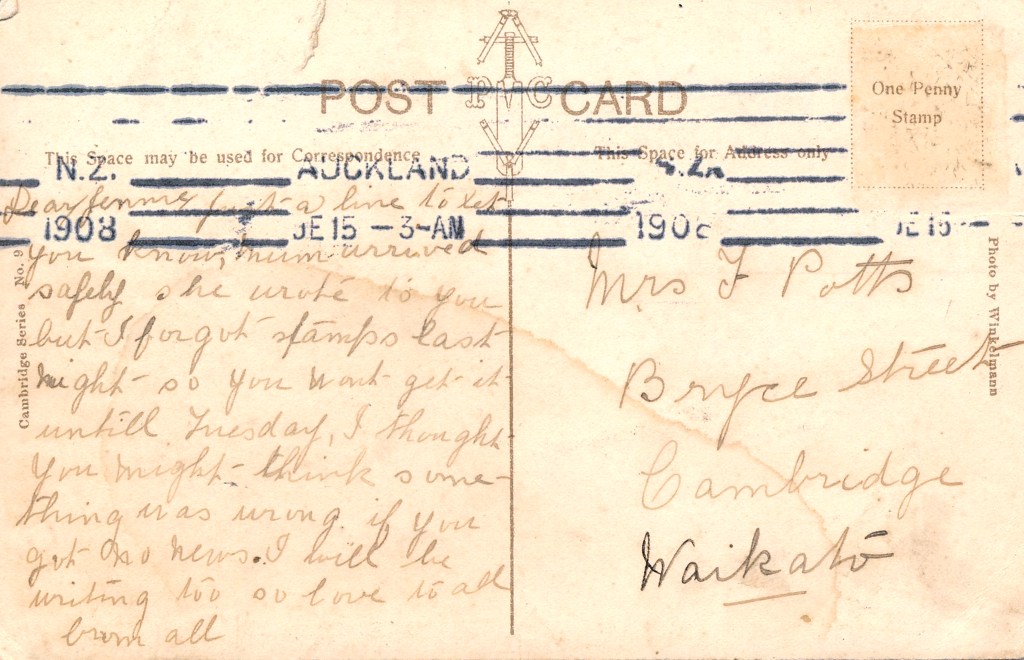 POST CARD
P C
One Penny
Stamp
This Space may be used for Correspondence
This Space for Address only
N.Z. AUCKLAND N.Z.
1908 JE 15 - 3-AM 1908 JE 15 -
Dear Jenny just a line to let
you know, mum arrived
safely she wrote to you
but I forgot stamps last
night so you wont get it
untill Tuesday, I thought
you might think some-
thing was wrong if you
got no news. I will be
writing too so love to all
from all
Mrs F Potts
Bryce Street
Cambridge
Waikato
Cambridge Series No. 9
Photo by Winkelmann